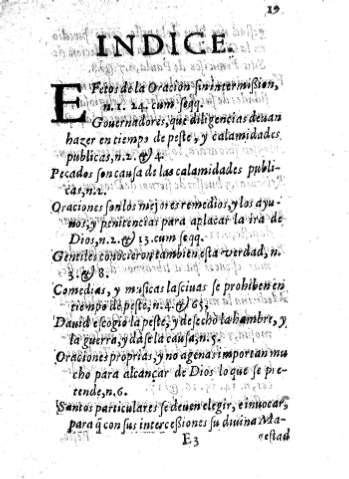 19
INDICE.
EFetos de la Oracion sin intermission,
n.1. 24. cum seqq.
Gouernadores, que diligencias deuan
hazer en tiempo de peste, y calamidades
publicas, n.2. & 4.
Pecados son causa de las calamidades publi-
cas, n.2.
Oraciones son los mejores remedios, y los ayu-
nos, y penitencias para aplacar la ira de
Dios, n.2. & 13. cum seqq.
Gentiles conocieron tambien esta verdad, n.
3. & 8.
Comedias, y musicas lasciuas se prohiben en
tiempo de peste, n.4. & 65,
Dauid escogiò la peste, y desechò la hambre, y
la guerra, y dàse la causa, n.5.
Oraciones proprias, y no agenas importan mu
cho para alcançar de Dios lo que se pre-
tende, n.6.
Santos particulares se deuen elegir, e inuocar,
para q̃ con sus intercessiones su diuina Ma-
E3 gestad